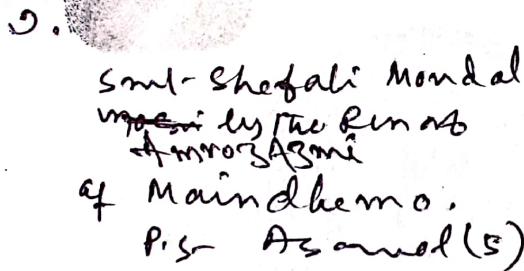 Smt- Shefali Mondal
by the Pen of
Amroz Azmi
of Maindhemo.
P.S-